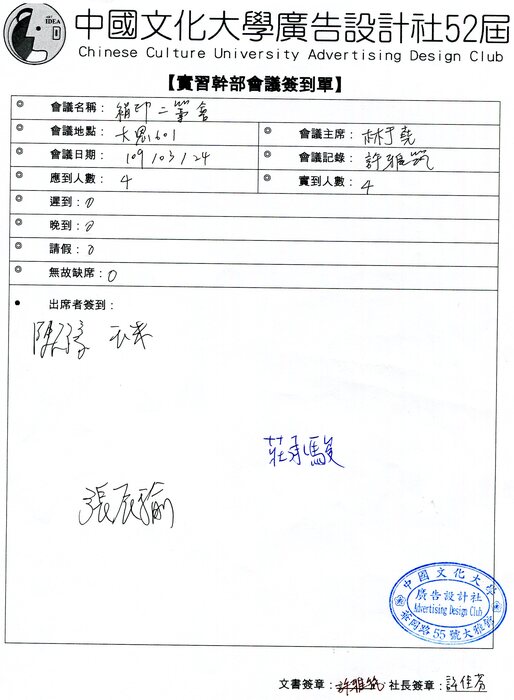 ART IDEA
中國文化大學廣告設計社52屆
Chinese Culture University Advertising Design Club
【實習幹部會議簽到單】
◎ 會議名稱：絹印二籌會
◎ 會議地點：大恩601 ◎ 會議主席：林于堯
◎ 會議日期：109/03/24 ◎ 會議記錄：許雅筑
◎ 應到人數：4 ◎ 實到人數：4
◎ 遲到：0
◎ 晚到：0
◎ 請假：0
◎ 無故缺席：0
• 出席者簽到：
莊承駿
張辰瑜
中國文化大學
廣告設計社
Advertising Design Club
華岡路55號大雅館
文書簽章：許雅筑 社長簽章：許佳芳